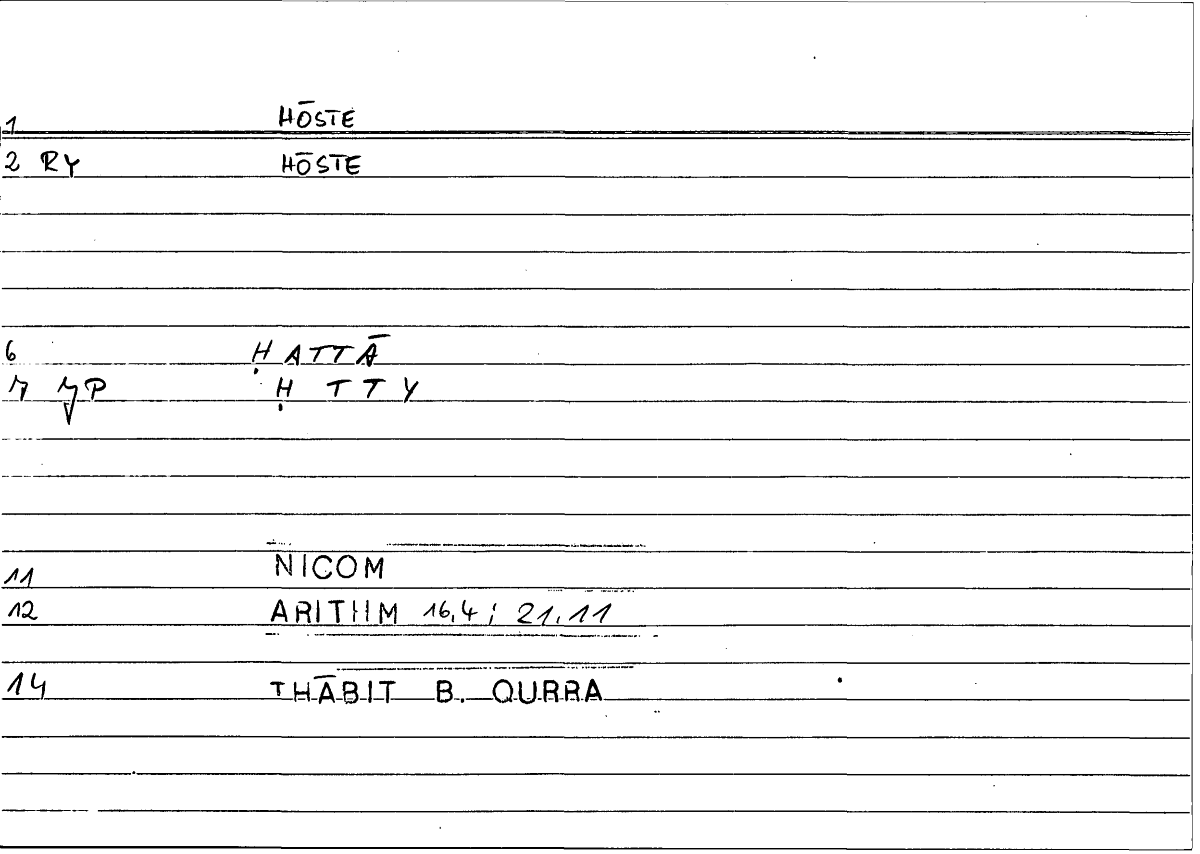 1 HŌSTE
2 RY HŌSTE
6 ḤATTĀ
7 JP Ḥ T T Y
11 NICOM
12 ARITHM 16,4; 21,11
14 THĀBIT B. QURRA